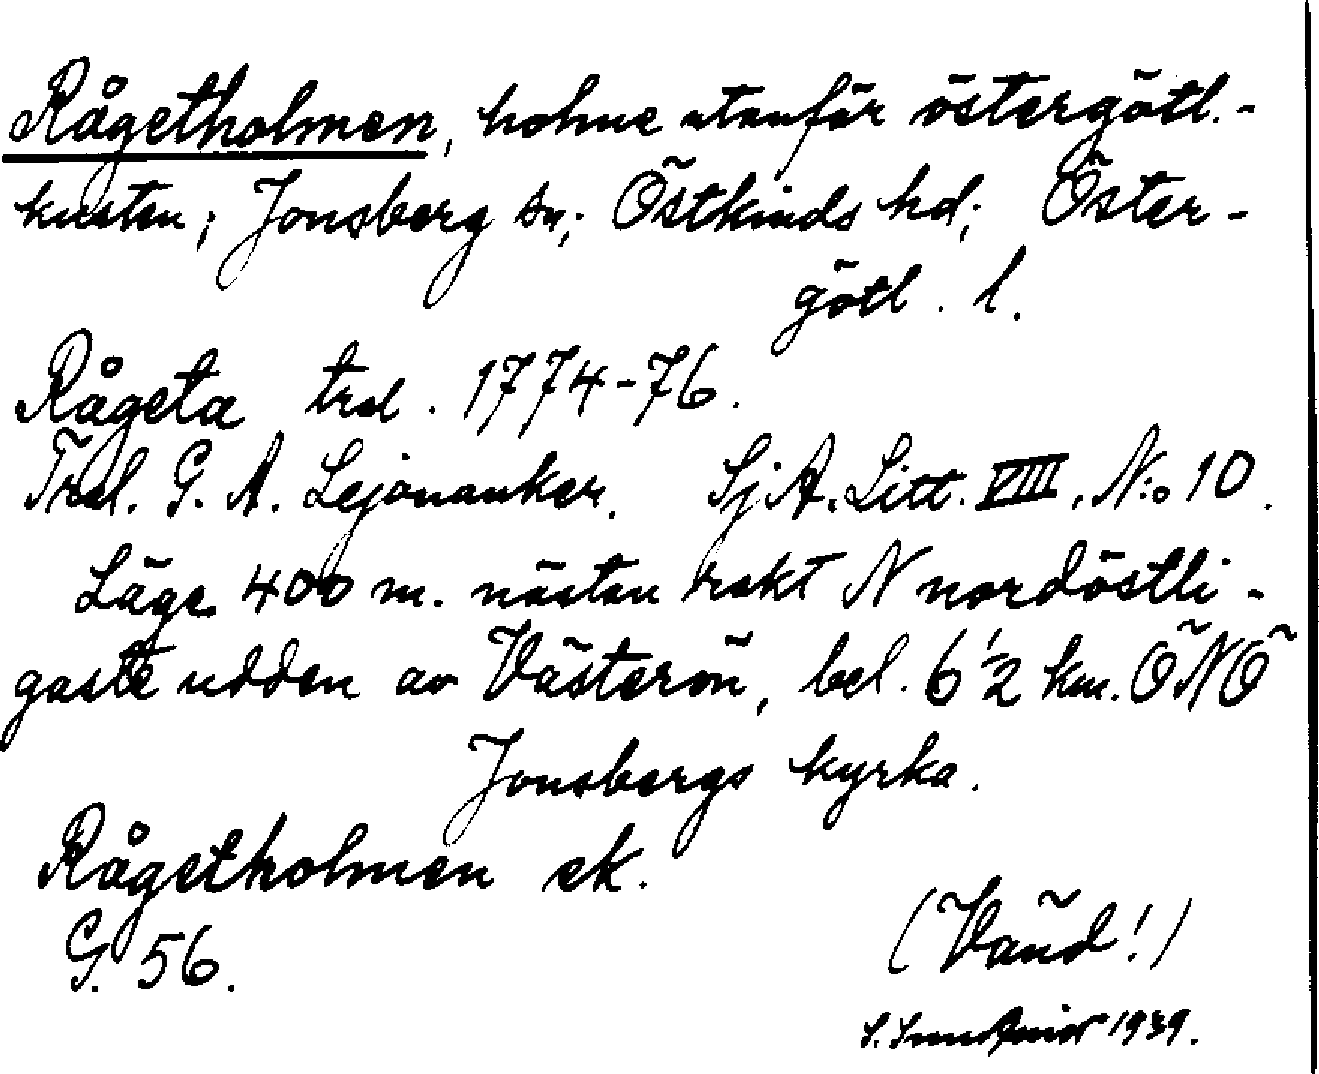 Rågetholmen, holme utanför östergötl.-
kusten; Jonsberg sn; Östkinds hd; Öster-
götl. l.
Rågeta trol. 1774-76.
Trol. G. A. Lejonanker. SjA. Litt. VIII. N:o 10.
Läge 400 m. nästan rakt N nordöstli-
gaste udden av Västerön, bel. 6 1/2 km. ÖNÖ
Jonsbergs kyrka.
Rågetholmen ek.
G. 56.
(Vänd!)
S. 1939.